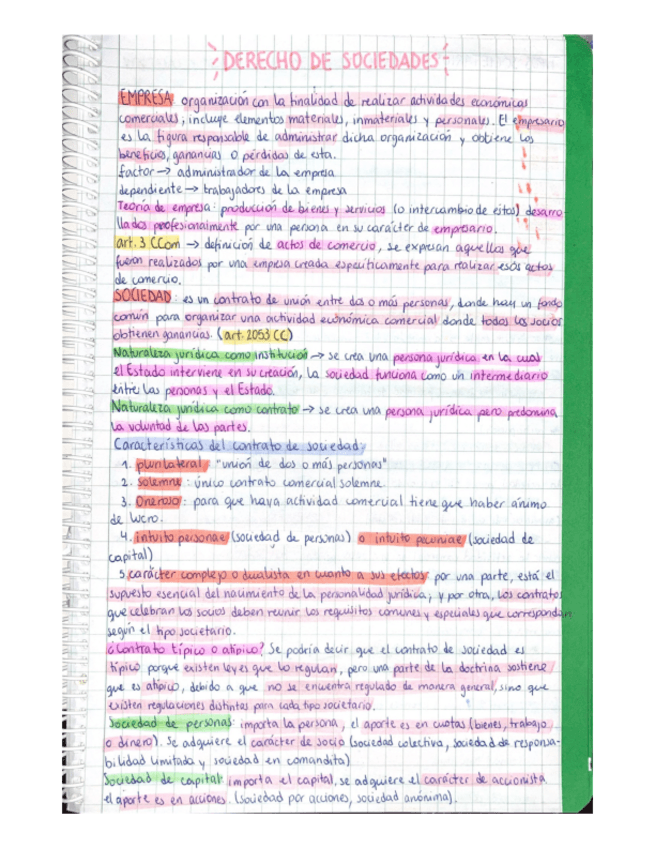 DERECHO DE SOCIEDADES
EMPRESA organización con la finalidad de realizar actividades económicas
comerciales, incluye elementos materiales, inmateriales y personales. El empresario
es la figura responsable de administrar dicha organización y obtiene los
beneficios, ganancias o pérdidas de esta.
factor → administrador de la empresa
dependiente → trabajadores de la empresa
Teoría de empresa: producción de bienes y servicios (o intercambio de estos) desarro-
llados profesionalmente por una persona en su carácter de empresario.
art. 3 CCom → definición de actos de comercio, se expresan aquellos que
fueron realizados por una empresa creada específicamente para realizar esos actos
de comercio.
SOCIEDAD: es un contrato de unión entre dos o más personas, donde hay un fondo
común para organizar una actividad económica comercial donde todos los socios
obtienen ganancias. (art. 2053 CC)
Naturaleza jurídica como institución → se crea una persona jurídica en la cual
el Estado interviene en su creación, la sociedad funciona como un intermediario
entre las personas y el Estado.
Naturaleza jurídica como contrato → se crea una persona jurídica pero predomina
la voluntad de las partes.
Características del contrato de sociedad:
1. plurilateral: "unión de dos o más personas"
2. solemne: único contrato comercial solemne.
3. Oneroso: para que haya actividad comercial tiene que haber ánimo
de lucro.
4. intuito personae (sociedad de personas) o intuito pecuniae (sociedad de
capital)
5. carácter complejo o dualista en cuanto a sus efectos: por una parte, está el
supuesto esencial del nacimiento de la personalidad jurídica, y por otra, los contratos
que celebran los socios deben reunir los requisitos comunes y especiales que correspondan
según el tipo societario.
¿Contrato típico o atípico? Se podría decir que el contrato de sociedad es
típico porque existen leyes que lo regulan, pero una parte de la doctrina sostiene
que es atípico, debido a que no se encuentra regulado de manera general, sino que
existen regulaciones distintas para cada tipo societario.
Sociedad de personas: importa la persona, el aporte es en cuotas (bienes, trabajo
o dinero). Se adquiere el carácter de socio (sociedad colectiva, sociedad de responsa-
bilidad limitada y sociedad en comandita)
Sociedad de capital: importa el capital, se adquiere el carácter de accionista
el aporte es en acciones. (sociedad por acciones, sociedad anónima).